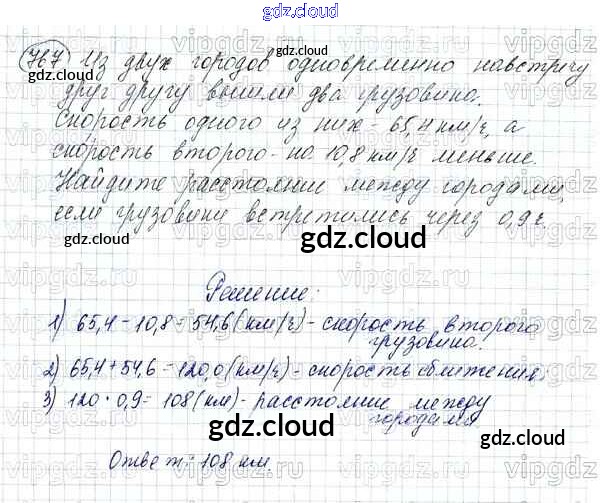 gdz.cloud
767 Из двух городов одновременно навстречу
gdz.cloud
друг другу вышли два грузовика.
Скорость одного из них - 65,4 км/ч, а
скорость второго - на 10,8 км/ч меньше.
Найдите расстояние между городами,
если грузовики встретились через 0,9 ч.
gdz.cloud
Решение:
1) 65,4 - 10,8 = 54,6 (км/ч) - скорость второго
грузовика.
2) 65,4 + 54,6 = 120,0 (км/ч) - скорость сближения
3) 120 · 0,9 = 108 (км) - расстояние между
городами
gdz.cloud
Ответ: 108 км.